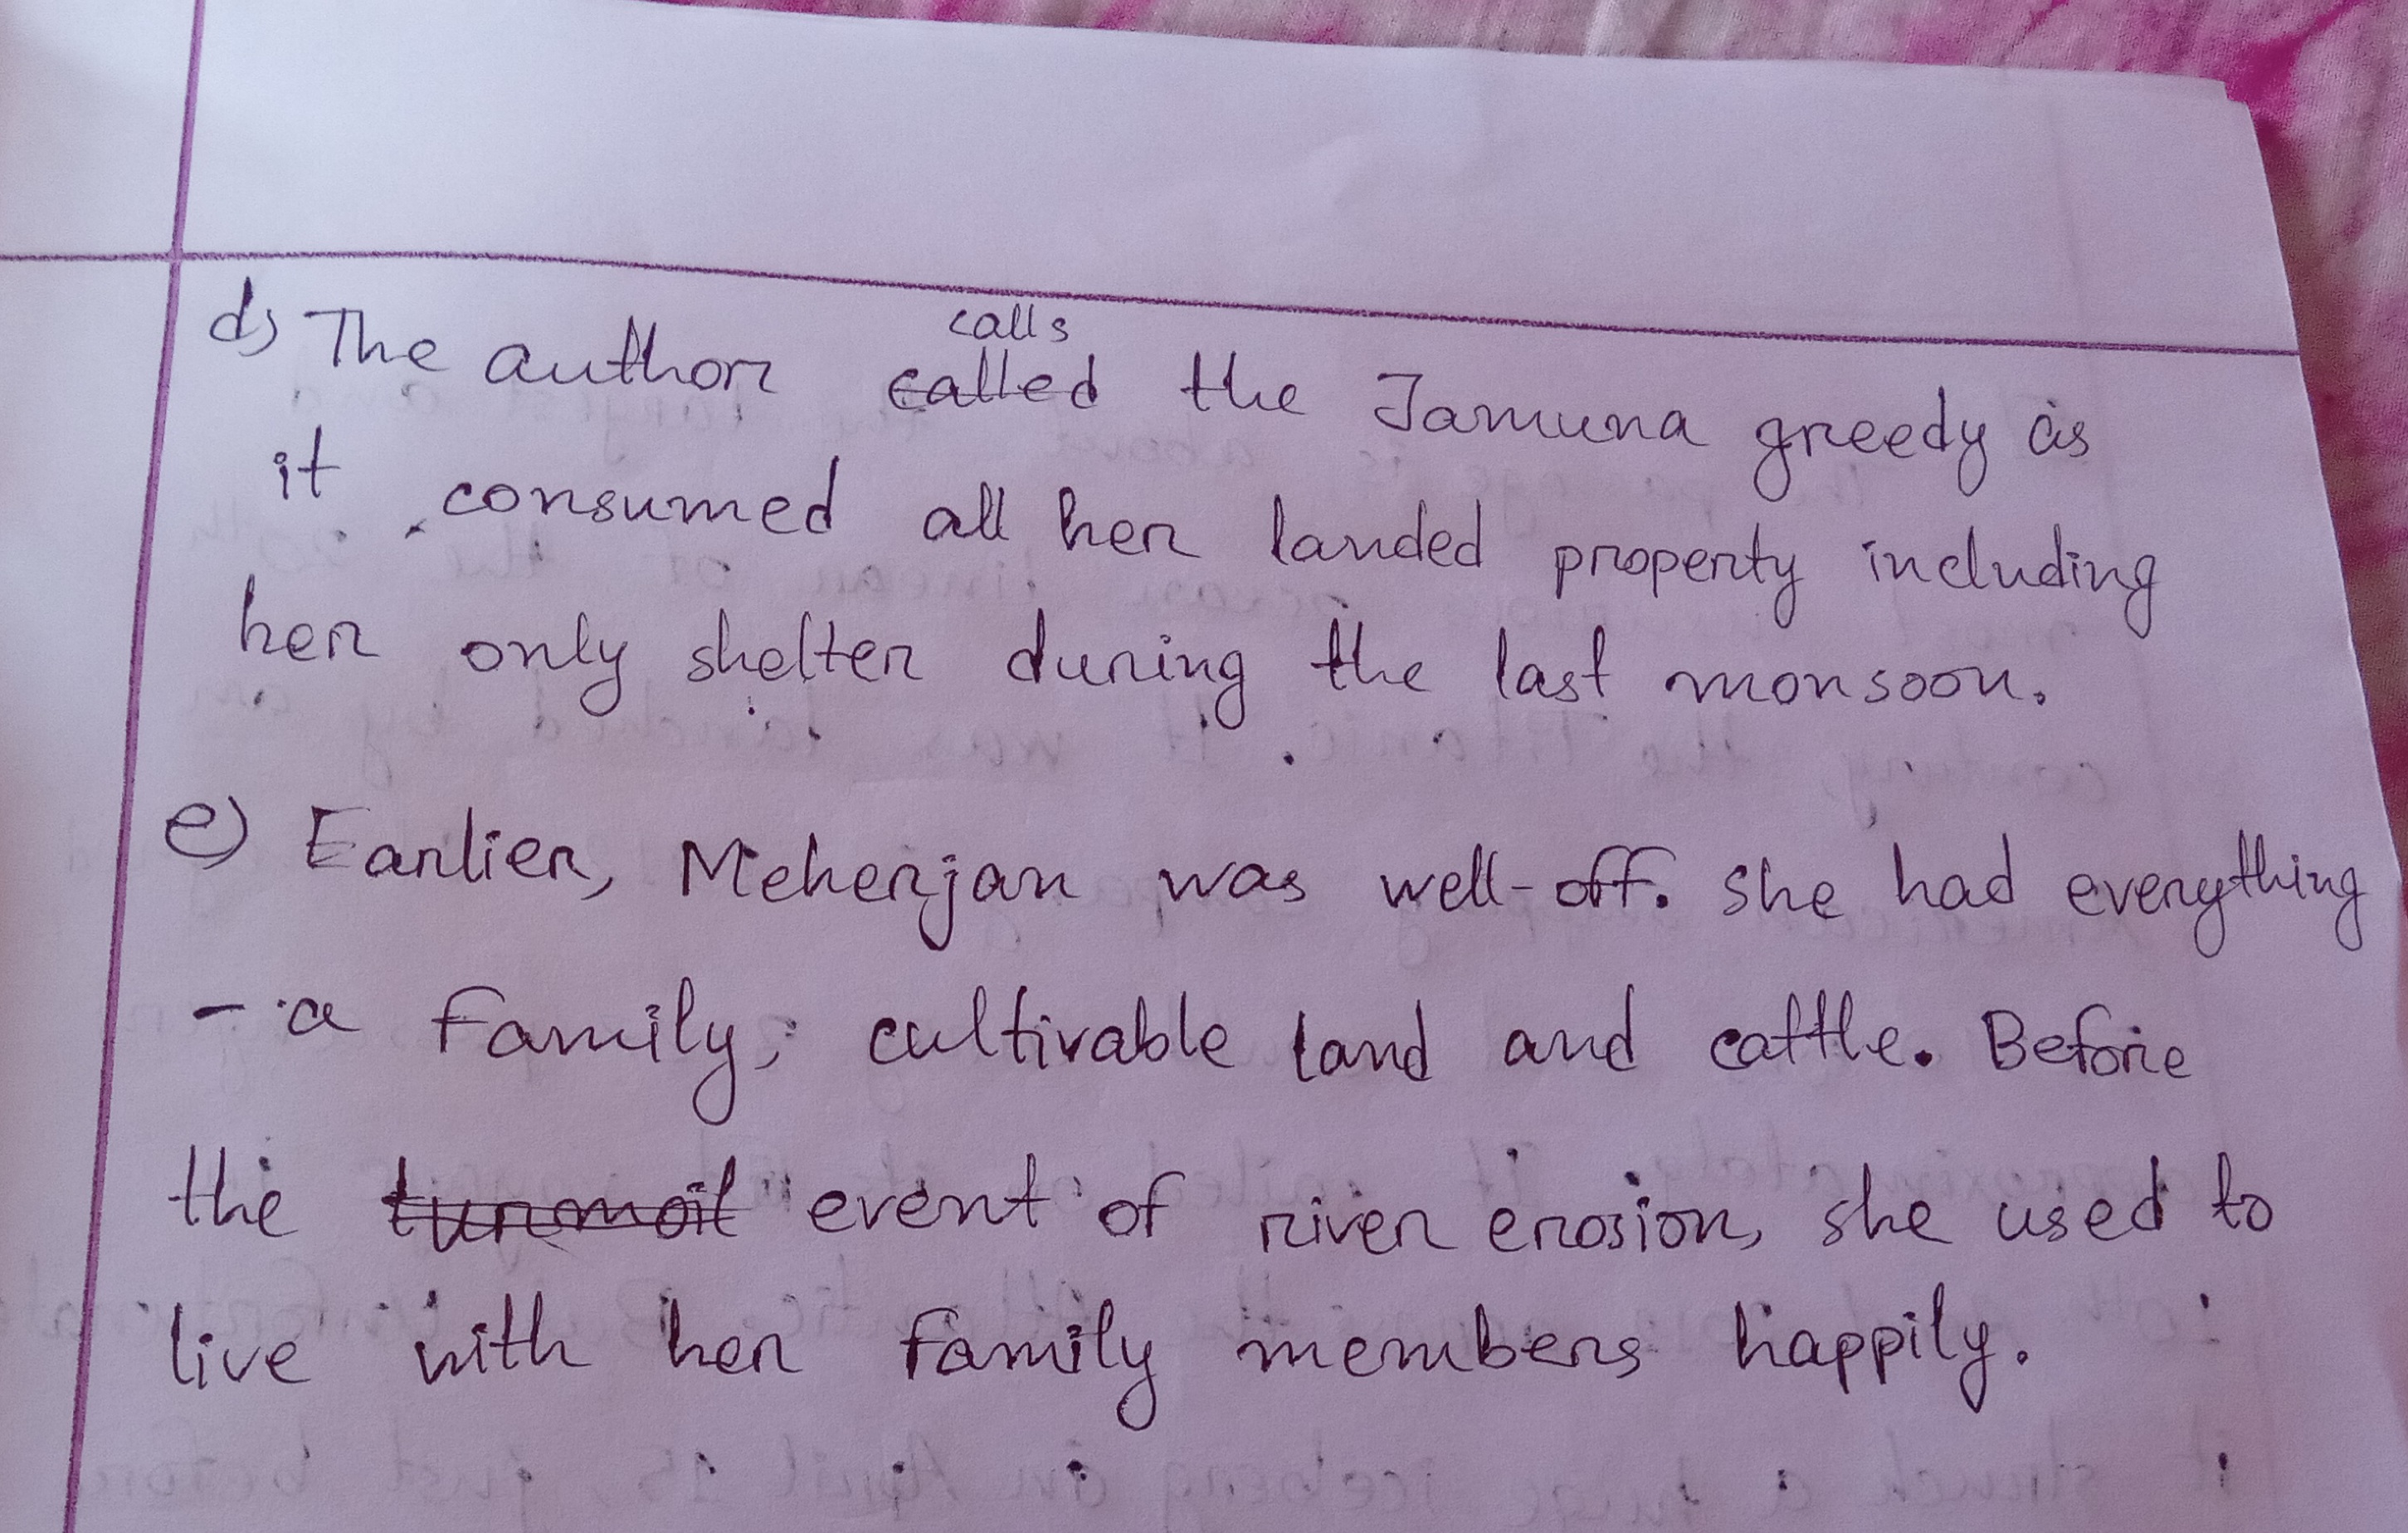 calls
d) The author called the Jamuna greedy as
it consumed all her landed property including
her only shelter during the last monsoon.
e) Earlier, Meherjan was well-off. She had everything
- a family, cultivable land and cattle. Before
the turmoil event of river erosion, she used to
live with her family members happily.